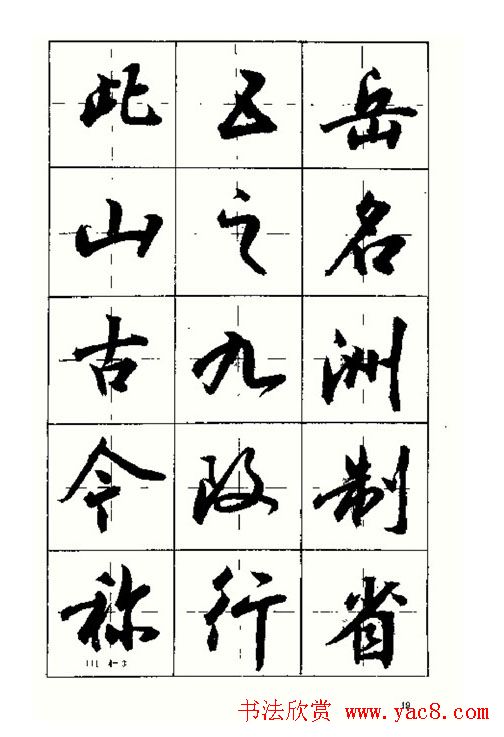 此五岳
山之名
古九洲
今改制
称行省
19
书法欣赏 www.yac8.com